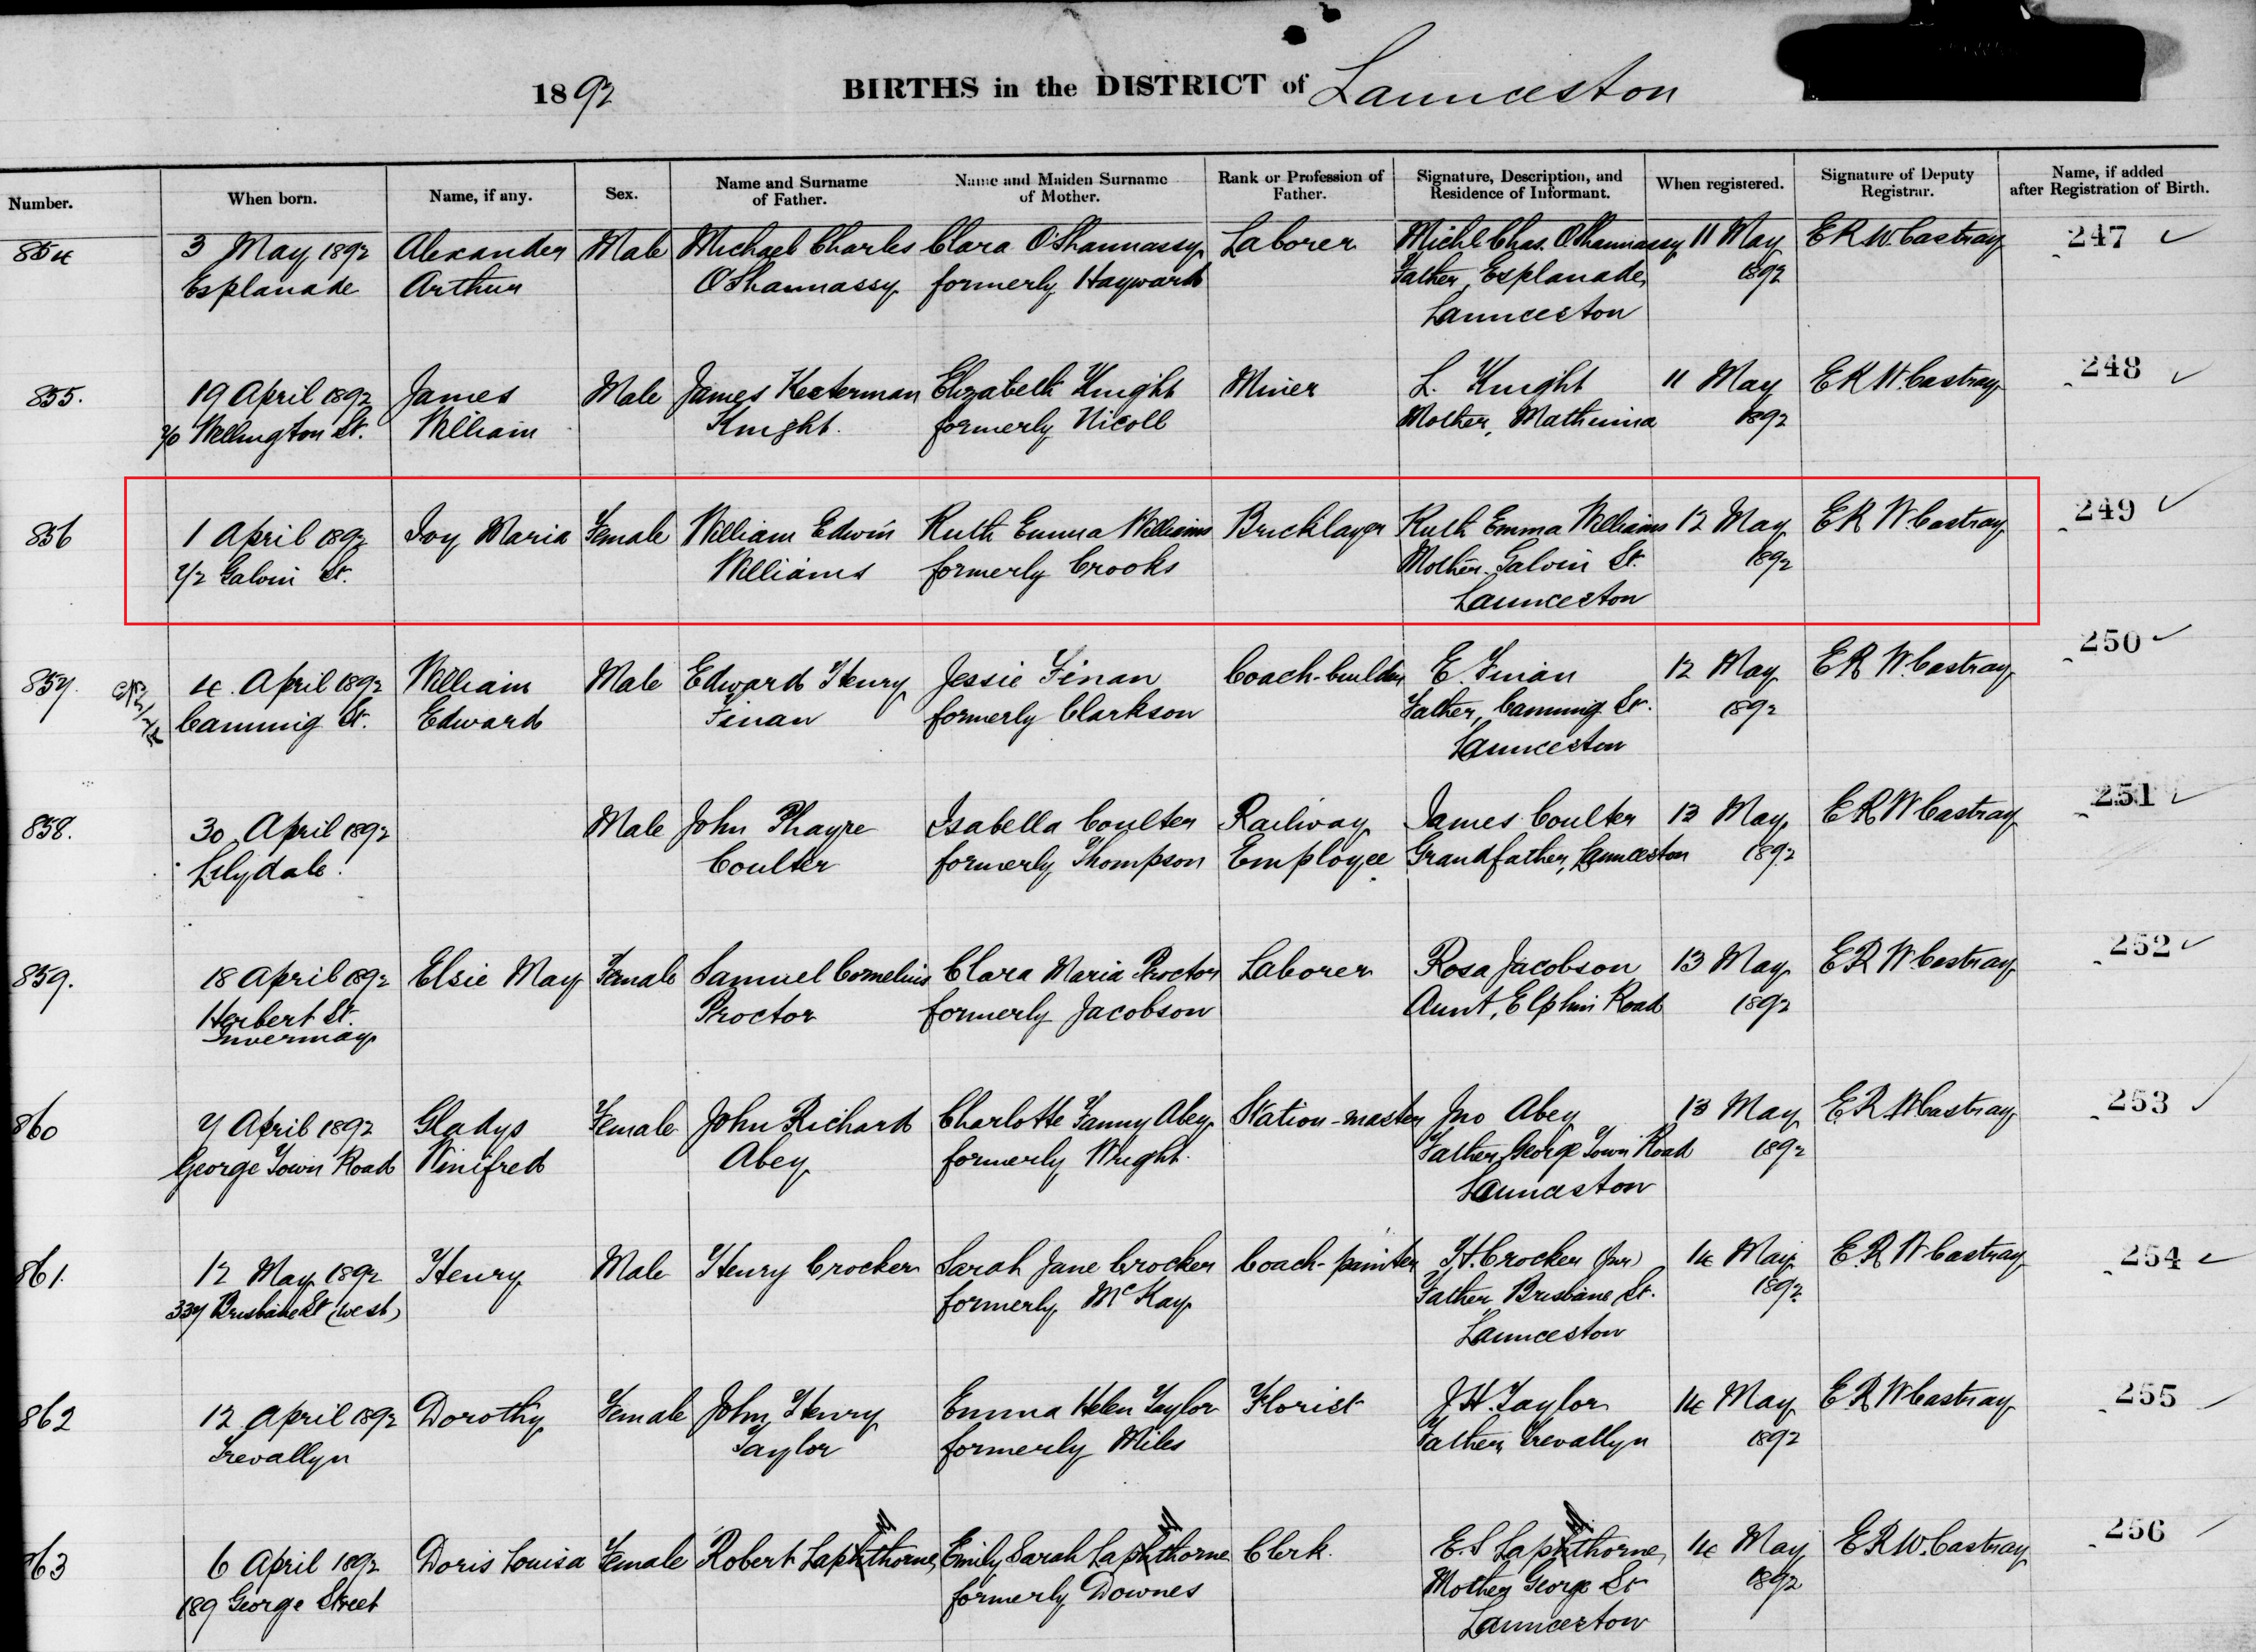 1892 BIRTHS in the DISTRICT of Launceston
Number. When born. Name, if any. Sex. Name and Surname of Father. Name and Maiden Surname of Mother. Rank or Profession of Father. Signature, Description, and Residence of Informant. When registered. Signature of Deputy Registrar. Name, if added after Registration of Birth.
854 3 May 1892 Alexander Male Michael Charles Clara O'Shannassy Laborer Michl Chas. O'Shannassy 11 May E R W Castray 247
Esplanade Arthur O'Shannassy formerly Hayward Father, Esplanade, 1892
Launceston
855. 19 April 1892 James Male James Kesterman Elizabeth Knight Miner L. Knight 11 May E R W. Castray 248
Wellington St. William Knight. formerly Nicoll Mother, Mathinna 1892
856 1 April 1892 Ivy Maria Female William Edwin Ruth Emma Williams Bricklayer Ruth Emma Williams 12 May E R W. Castray 249
72 Galvin St. Williams formerly Crooks Mother. Galvin St. 1892
Launceston
857. 4 April 1892 William Male Edward Henry Jessie Finan Coach-builder E. Finan 12 May E R W. Castray 250
Canning St. Edward Finan formerly Clarkson Father, Canning St. 1892
Launceston
858. 30 April 1892 Male John Phayre Isabella Coulter Railway James Coulter 13 May E R W Castray 251
Lilydale. Coulter formerly Thompson Employee Grandfather, Launceston 1892
859. 18 April 1892 Elsie May Female Samuel Cornelius Clara Maria Proctor Laborer Rosa Jacobson 13 May E R W. Castray 252
Herbert St. Proctor formerly Jacobson Aunt, Elphin Road 1892
Invermay
860 7 April 1892 Gladys Female John Richard Charlotte Fanny Abey Station-master Jno Abey 13 May E R W Castray 253
George Town Road Winifred Abey formerly Wright. Father, George Town Road 1892
Launceston
861. 12 May 1892 Henry Male Henry Crocker Sarah Jane Crocker Coach-painter H. Crocker (Jnr) 14 May E. R W Castray 254
337 Brisbane St (west) formerly McKay Father Brisbane St. 1892
Launceston
862 12 April 1892 Dorothy Female John Henry Emma Helen Taylor Florist J. H. Taylor 14 May E R W Castray 255
Trevallyn Taylor formerly Miles Father, Trevallyn 1892
863 6 April 1892 Doris Louisa Female Robert Lapthorne, Emily Sarah Lapthorne Clerk. E. S Lapthorne, 14 May E R W. Castray 256
189 George Street formerly Downes Mother George St 1892
Launceston